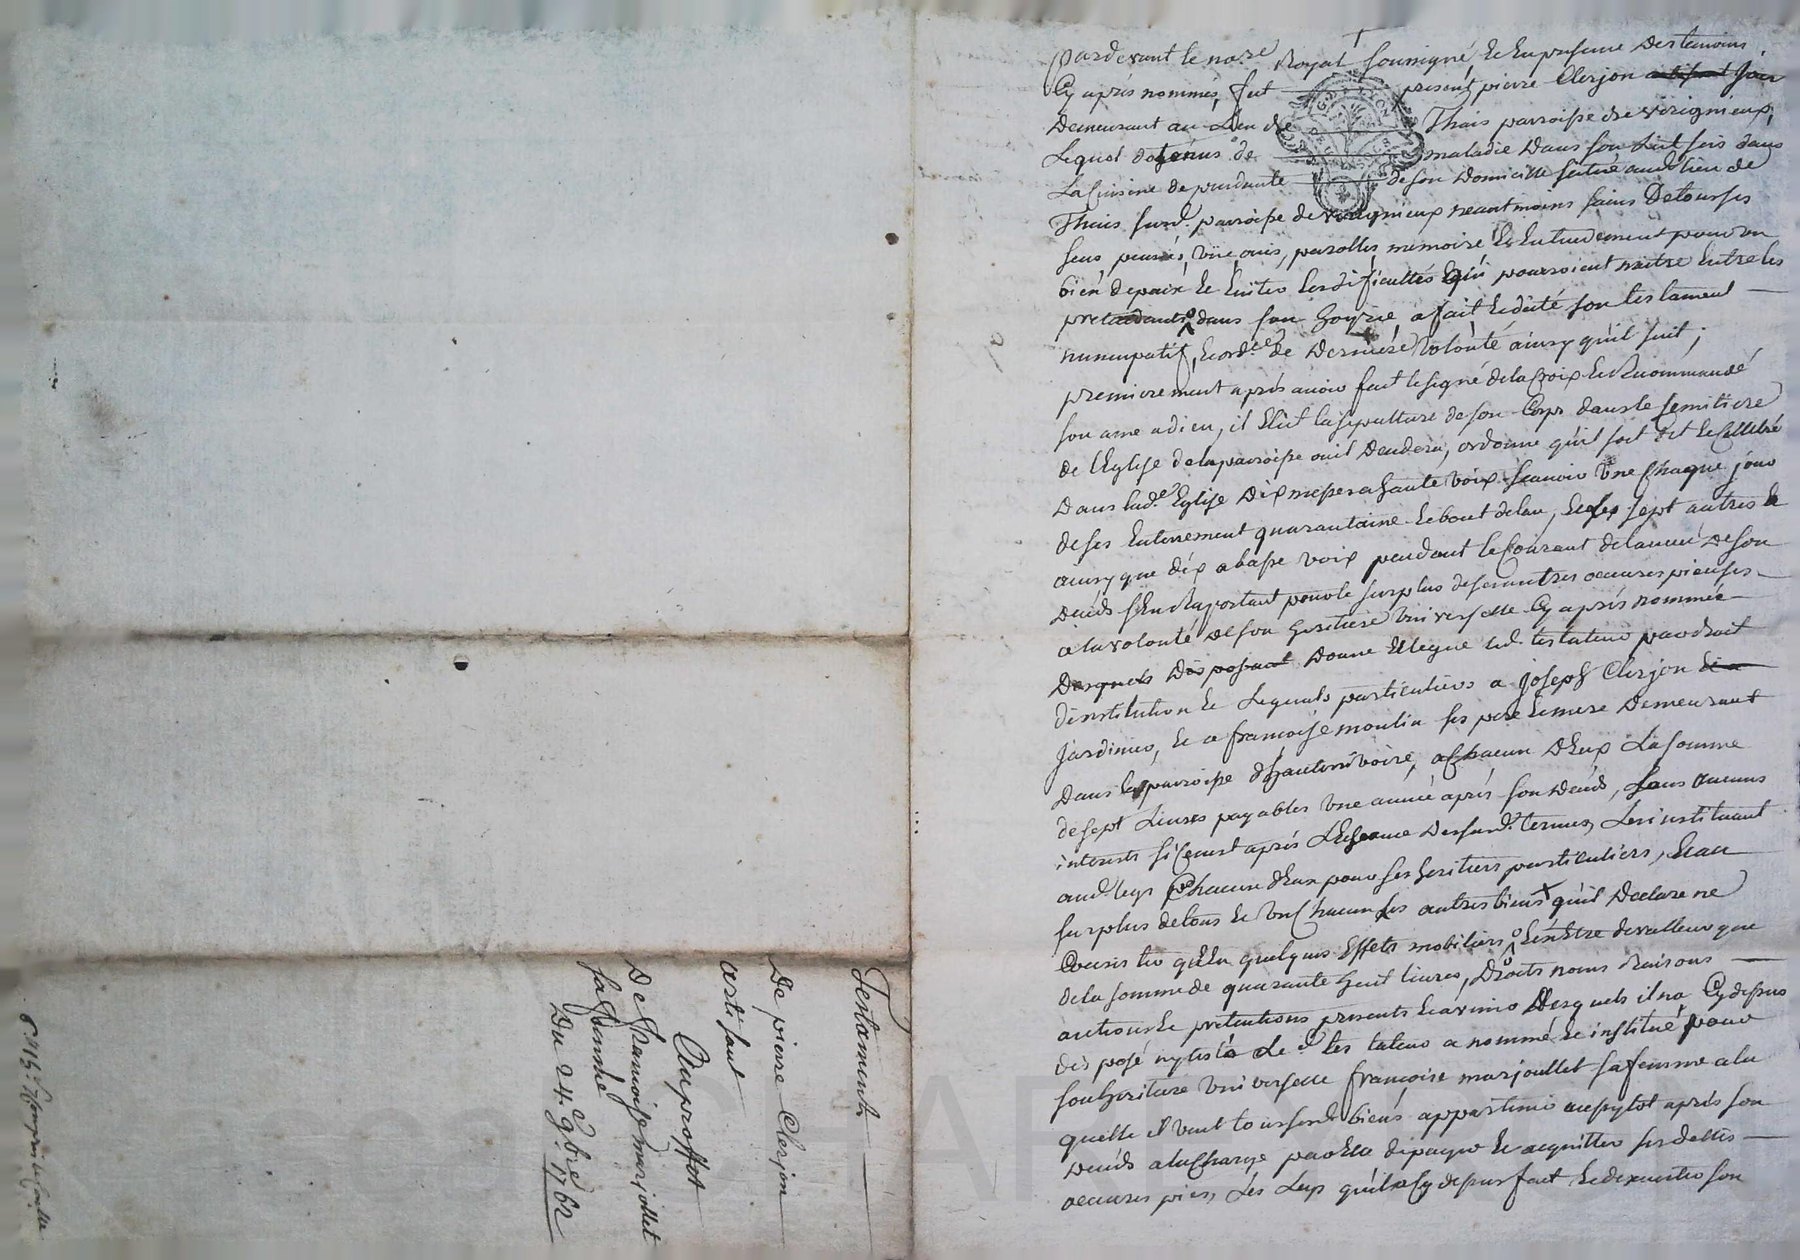 Testament
De pierre Clerjon
artisant
Au proffot
De francoise marjollet
sa femme
Du 24.e 9bre 1762
pardevant le no.re Royal soussigné et en presence des temoins
Cy aprés nommés, fut present pierre Clerjon artisant
Demeurant au Lieu de Thais parroisse de virignieux,
Lequel detenus de maladie dans son Lict sis dans
La Cuisine dependante de son Domicille situé aud. lieu de
Thais susd. parroisse de virignieux neantmoins sains De tous ses
sens pensées, vüe ouis, parolles, memoire Et Entendement pour un
bien de paix Et Eviter Les dificultés qui pourroient naitre Entre les
pretendants dans son hoyrie a fait Et dicté son testament
nuncupatif, Et ord.ce de Derniere volonté ainsy qu'il suit;
premierement aprés avoir fait le signe de la Croix Et Recommandé
son ame a dieu, il Elit la sepulture de son Corps dans le semitiere
de l'Eglise de la parroisse ou il Decedera, ordonne qu'il soit dit Et Cellebré
Dans lad.e Eglise Dix messes a haute voix scavoir une Chaque jour
de ses Enterrement quarantaine Et bout de l'an, Et les sept autres
ainsy que dix a basse voix pendant le Courant de l'année De son
Decés s'En Raportant pour le surplus de ses autres oeuvres pieuses
a la volonté De son heritiere universelle Cy aprés nommée
Desquels Disposant Donne Et legue led. testateur par droit
d'institution Et Leguats particuliers a joseph Clerjon
jardinier, Et a francoise moulin ses pere Et mere Demeurant
Dans la parroisse d'hauterivoire, a Chacun D'Eux La somme
de sept Livres payables une année aprés son Decés, sans aucuns
interests si Ce n'est aprés L'Echeance Desusd. termes, Les instituant
aud. legs Chacun d'Eux pour ses heritiers particuliers, Et au
surplus de tous Et un Chacun ses autres biens qu'il Declare ne
Consister qu'En quelques Effets mobiliers Et n'Estre de valleur que
de la somme de quarante huit livres, Droits noms Raisons
actions Et pretentions presents Et avenir Desquels il n'a Cy dessus
disposé ny testé Led. testateur a nommé Et institué pour
son heritiere universelle françoise marjoullet sa femme a la
quelle il veut tous sesd. biens appartenir aussytot aprés son
Decés a la Charge par Elle de payer Et acquitter ses dettes
oeuvres pies, Les Legs qu'il a Cy dessus fait, Et d'executer son